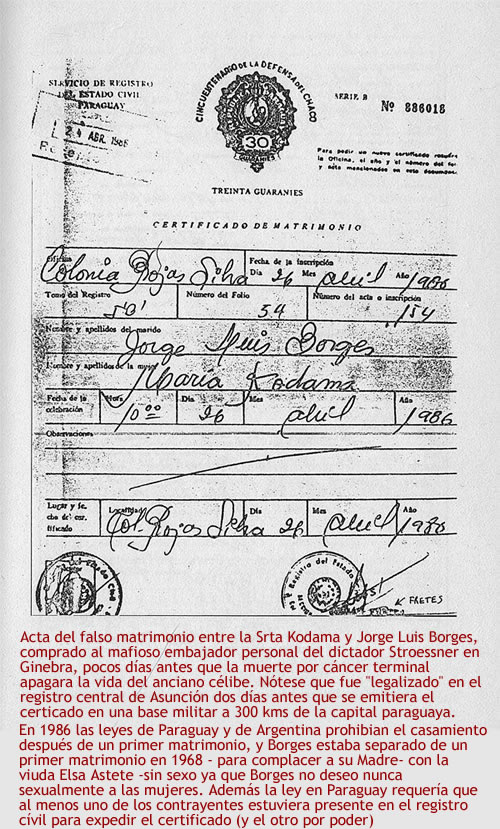 SERVICIO DE REGISTRO
DEL ESTADO CIVIL
PARAGUAY
24 ABR. 1986
CINCUENTENARIO DE LA DEFENSA DEL CHACO
30
GUARANIES
SERIE B
Nº 886018
Para pedir un nuevo certificado
la Oficina, el año y el número del
y acta mencionados en este documento.
TREINTA GUARANIES
CERTIFICADO DE MATRIMONIO
Oficina
Colonia Rojas Silva
Fecha de la inscripción
Día 26 Mes abril Año 1986
Tomo del Registro
Número del Folio
54
Número del acta o inscripción
154
Nombre y apellidos del marido
Jorge Luis Borges
Nombre y apellidos de la mujer
María Kodama
Fecha de la celebración
Hora
10:00
Día
26
Mes
abril
Año
1986
Observaciones
Lugar y fecha de certificado
Localidad
Col. Rojas Silva
Día
26
Mes
abril
Año
1986
Registro del Estado
Acta del falso matrimonio entre la Srta Kodama y Jorge Luis Borges,
comprado al mafioso embajador personal del dictador Stroessner en
Ginebra, pocos días antes que la muerte por cáncer terminal
apagara la vida del anciano célibe. Nótese que fue "legalizado" en el
registro central de Asunción dos días antes que se emitiera el
certicado en una base militar a 300 kms de la capital paraguaya.
En 1986 las leyes de Paraguay y de Argentina prohibian el casamiento
después de un primer matrimonio, y Borges estaba separado de un
primer matrimonio en 1968 - para complacer a su Madre- con la
viuda Elsa Astete -sin sexo ya que Borges no deseo nunca
sexualmente a las mujeres. Además la ley en Paraguay requería que
al menos uno de los contrayentes estuviera presente en el registro
cívil para expedir el certificado (y el otro por poder)